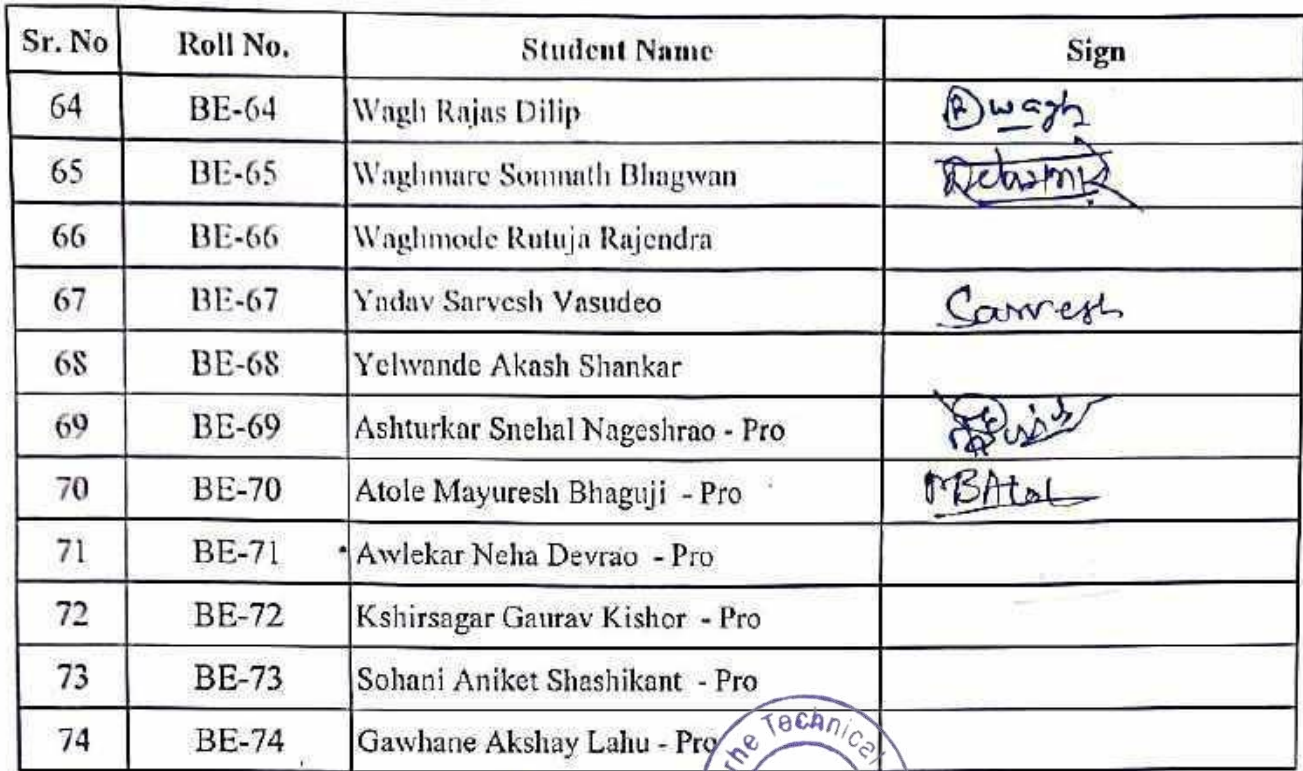 Sr. No Roll No. Student Name Sign
64 BE-64 Wagh Rajas Dilip R wagh
65 BE-65 Waghmare Somnath Bhagwan
66 BE-66 Waghmode Rutuja Rajendra
67 BE-67 Yadav Sarvesh Vasudeo Sarvesh
68 BE-68 Yelwande Akash Shankar
69 BE-69 Ashturkar Snehal Nageshrao - Pro
70 BE-70 Atole Mayuresh Bhaguji - Pro MBAtol
71 BE-71 Awlekar Neha Devrao - Pro
72 BE-72 Kshirsagar Gaurav Kishor - Pro
73 BE-73 Sohani Aniket Shashikant - Pro
74 BE-74 Gawhane Akshay Lahu - Pro
Technical